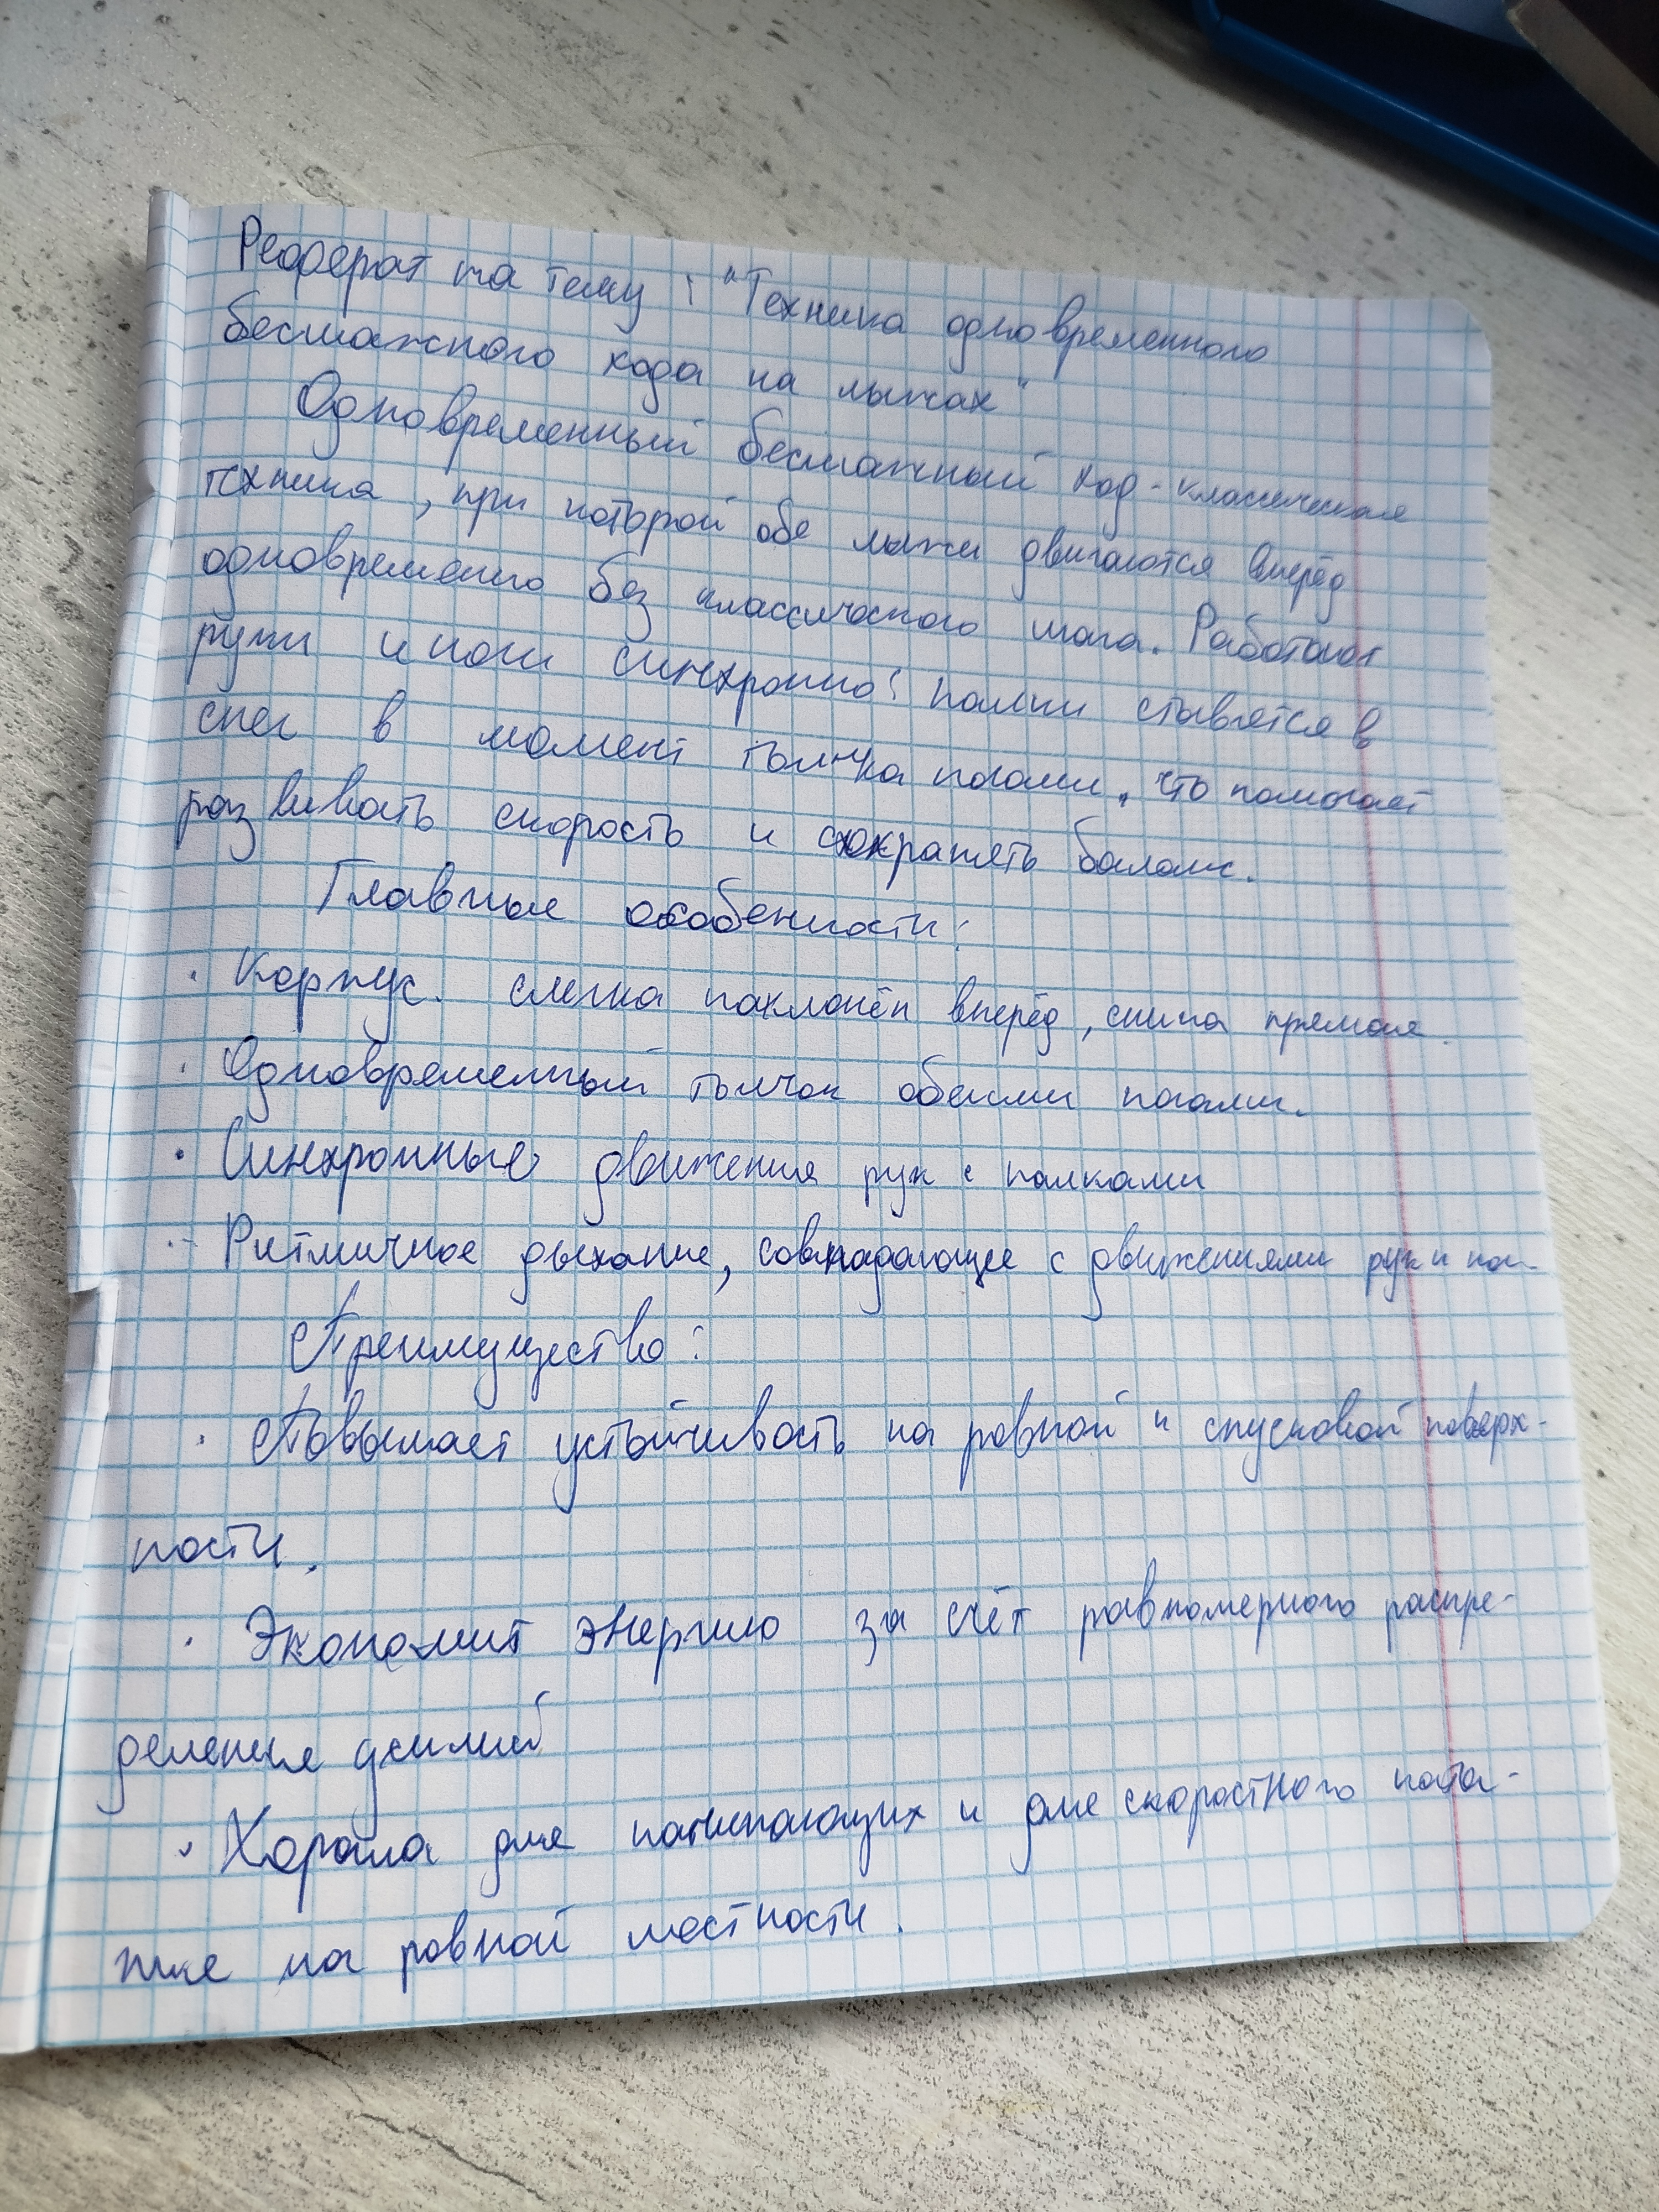 Реферат на тему: "Техника одновременного
бесшажного хода на лыжах"
Одновременный бесшажный ход - классическая
техника, при которой обе лыжи двигаются вперёд
одновременно без классического шага. Работают
руки и ноги синхронно: палки ставятся в
снег в момент толчка ногами, что помогает
развивать скорость и сохранять баланс.
Главные особенности:
· Корпус слегка наклонён вперёд, спина прямая.
· Одновременный толчок обеими ногами.
· Синхронные движения рук с палками
· Ритмичное дыхание, совпадающее с движениями рук и ног
Преимущества:
· Повышает устойчивость на ровной и спусковой поверх-
ности.
· Экономит энергию за счёт равномерного распре-
деления усилий
· Хороша для начинающих и для скоростного ката-
ния на ровной местности.